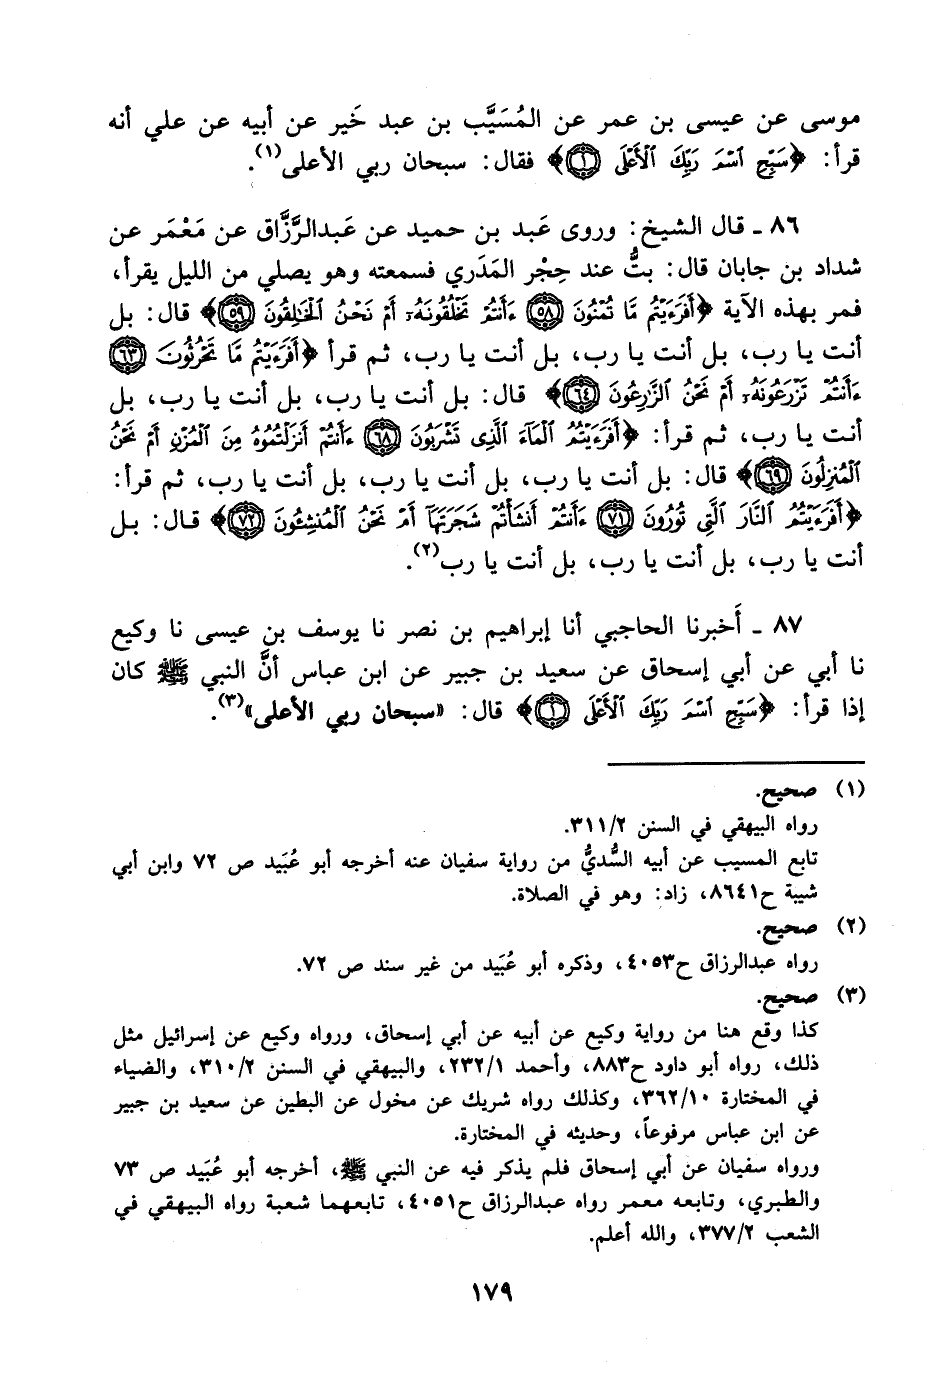 موسى عن عيسى بن عمر عن المُسَيَّب بن عبد خَير عن أبيه عن علي أنه
قرأ: ﴿سَبِّحِ ٱسْمَ رَبِّكَ ٱلْأَعْلَى ۝١﴾ فقال: سبحان ربي الأعلى(١).
٨٦ ـ قال الشيخ: وروى عَبد بن حميد عن عَبدالرَّزَّاق عن مَعْمَر عن
شداد بن جابان قال: بتُّ عند حِجْر المَدَري فسمعته وهو يصلي من الليل يقرأ،
فمر بهذه الآية ﴿أَفَرَءَيْتُم مَّا تُمْنُونَ ۝٥٨ ءَأَنتُمْ تَخْلُقُونَهُۥٓ أَمْ نَحْنُ ٱلْخَٰلِقُونَ ۝٥٩﴾ قال: بل
أنت يا رب، بل أنت يا رب، بل أنت يا رب، ثم قرأ ﴿أَفَرَءَيْتُم مَّا تَحْرُثُونَ ۝٦٣
ءَأَنتُمْ تَزْرَعُونَهُۥٓ أَمْ نَحْنُ ٱلزَّٰرِعُونَ ۝٦٤﴾ قال: بل أنت يا رب، بل أنت يا رب، بل
أنت يا رب، ثم قرأ: ﴿أَفَرَءَيْتُمُ ٱلْمَآءَ ٱلَّذِى تَشْرَبُونَ ۝٦٨ ءَأَنتُمْ أَنزَلْتُمُوهُ مِنَ ٱلْمُزْنِ أَمْ نَحْنُ
ٱلْمُنزِلُونَ ۝٦٩﴾ قال: بل أنت يا رب، بل أنت يا رب، بل أنت يا رب، ثم قرأ:
﴿أَفَرَءَيْتُمُ ٱلنَّارَ ٱلَّتِى تُورُونَ ۝٧١ ءَأَنتُمْ أَنشَأْتُمْ شَجَرَتَهَآ أَمْ نَحْنُ ٱلْمُنشِـُٔونَ ۝٧٢﴾ قال: بل
أنت يا رب، بل أنت يا رب، بل أنت يا رب(٢).
٨٧ ـ أَخبرنا الحاجبي أنا إبراهيم بن نصر نا يوسف بن عيسى نا وكيع
نا أبي عن أبي إسحاق عن سعيد بن جبير عن ابن عباس أنَّ النبي ﷺ كان
إذا قرأ: ﴿سَبِّحِ ٱسْمَ رَبِّكَ ٱلْأَعْلَى ۝١﴾ قال: «سبحان ربي الأعلى»(٣).
(١) صحيح.
رواه البيهقي في السنن ٣١١/٢.
تابع المسيب عن أبيه السُّديُّ من رواية سفيان عنه أخرجه أبو عُبَيد ص ٧٢ وابن أبي
شيبة ح٨٦٤١، زاد: وهو في الصلاة.
(٢) صحيح.
رواه عبدالرزاق ح٤٠٥٣، وذكره أبو عُبَيد من غير سند ص ٧٢.
(٣) صحيح.
كذا وقع هنا من رواية وكيع عن أبيه عن أبي إسحاق، ورواه وكيع عن إسرائيل مثل
ذلك، رواه أبو داود ح٨٨٣، وأحمد ٢٣٢/١، والبيهقي في السنن ٣١٠/٢، والضياء
في المختارة ٣٦٢/١٠، وكذلك رواه شريك عن مخول عن البطين عن سعيد بن جبير
عن ابن عباس مرفوعاً، وحديثه في المختارة.
ورواه سفيان عن أبي إسحاق فلم يذكر فيه عن النبي ﷺ، أخرجه أبو عُبَيد ص ٧٣
والطبري، وتابعه معمر رواه عبدالرزاق ح٤٠٥١، تابعهما شعبة رواه البيهقي في
الشعب ٣٧٧/٢، والله أعلم.
١٧٩